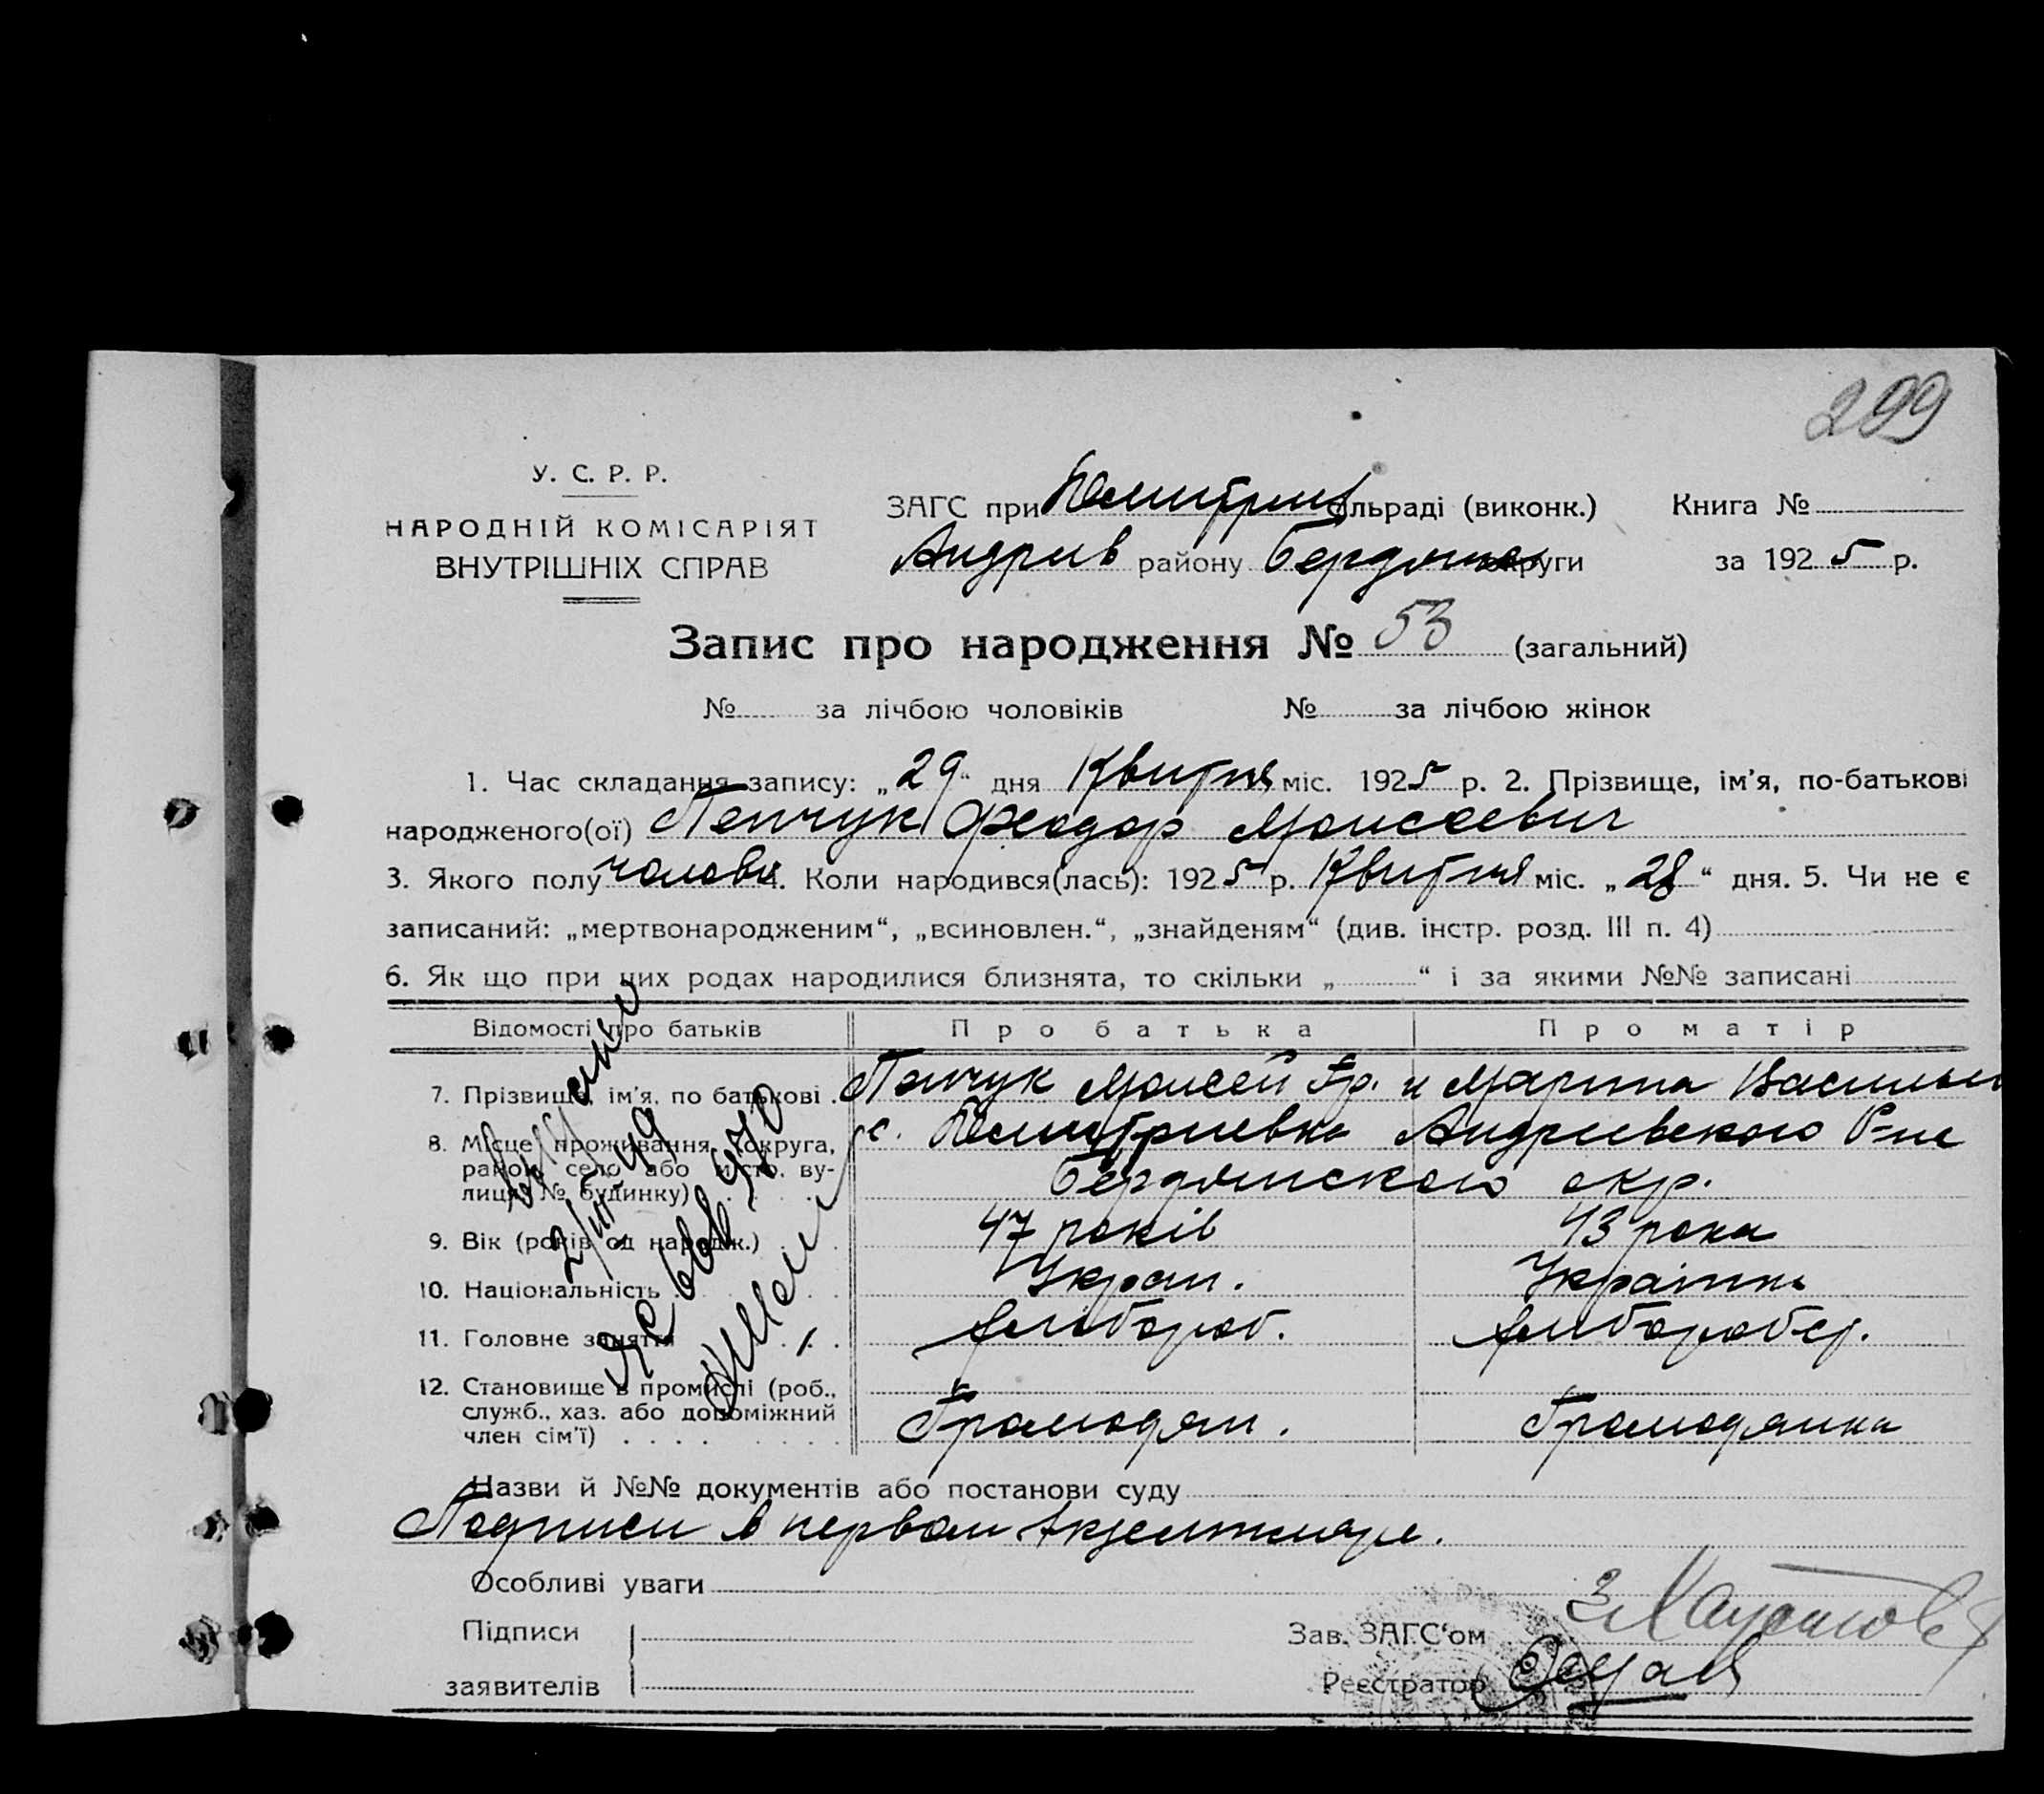 299
У. С. Р. Р.
НАРОДНІЙ КОМІСАРІЯТ
ВНУТРІШНІХ СПРАВ
ЗАГС при Дмитрив сільраді (виконк.) Книга №
Андрив району Бердянс округи за 1925 р.
Запис про народження № 53 (загальний)
№ за лічбою чоловіків № за лічбою жінок
1. Час складання запису: „29“ дня Квитня міс. 1925 р. 2. Прізвище, ім'я, по-батькові
народженого(ої) Пепчук Феодор Моисеевич
3. Якого полу чолови 4. Коли народився(лась): 1925 р. Квитня міс. „28“ дня. 5. Чи не є
записаний: „мертвонародженим“, „всиновлен.“, „знайденям“ (див. інстр. розд. III п. 4)
6. Як що при цих родах народилися близнята, то скільки „ “ і за якими №№ записані
Відомості про батьків Про батька Про матір
7. Прізвище, ім'я, по батькові . Пепчук Моисей Гр. и Марина Василь
8. Місце проживання (округа, район, село або місто, ву-
лиця, № будинку) с. Дмитриевка Андреевского Р-на
Бердянского окр.
9. Вік (років од народж.) 47 років 43 рока
10. Національність Украи. Украінка
11. Головне заняття хлібороб.
12. Становище в промислі (роб.,
служб., хаз. або допоміжний
член сім'ї) Громодян. Громодянка
Назви й №№ документів або постанови суду
Подписи в первом Экземпляре.
Особливі уваги
Підписи
заявителів
Зав. ЗАГС'ом
Реєстратор